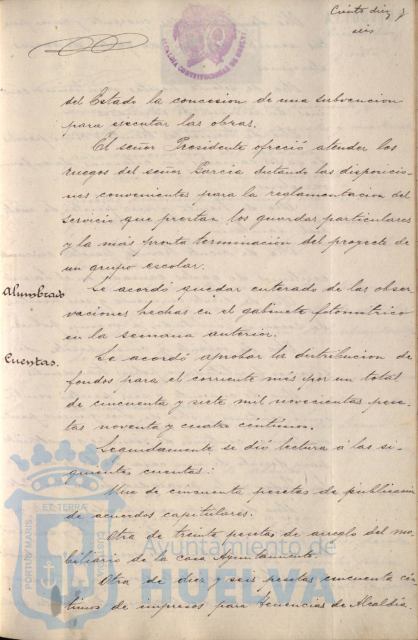 Ciento diez y
seis
ALCALDIA CONSTITUCIONAL DE HUELVA
del Estado la concesion de una subvencion
para ejecutar las obras.
El señor Presidente ofreció atender los
ruegos del señor Garcia dictando las disposicio-
nes convenientes para la reglamentacion del
servicio que prestan los guardas particulares
y la más pronta terminación del proyecto de
un grupo escolar.
Alumbrado
Se acordó quedar enterado de las obser
vaciones hechas en el gabinete fotometrico
en la semana anterior.
Cuentas.
Se acordó aprobar la distribucion de
fondos para el corriente més por un total
de cincuenta y siete mil novecientas pese-
tas noventa y cuatro céntimos.
Seguidamente se dió lectura á las si-
guientes cuentas:
Una de cincuenta pesetas de publicacion
de acuerdos capitulares.
Otra de treinta pesetas de arreglo del mo-
biliario de la casa Ayuntamiento.
Otra de diez y seis pesetas cincuenta cén-
timos de impresos para Tenencias de Alcaldía.
PORTUS MARIS ET TERRÆ
Ayuntamiento de
HUELVA